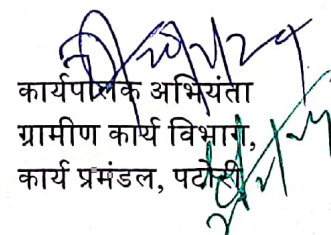 कार्यपालक अभियंता
ग्रामीण कार्य विभाग,
कार्य प्रमंडल, पटोरी